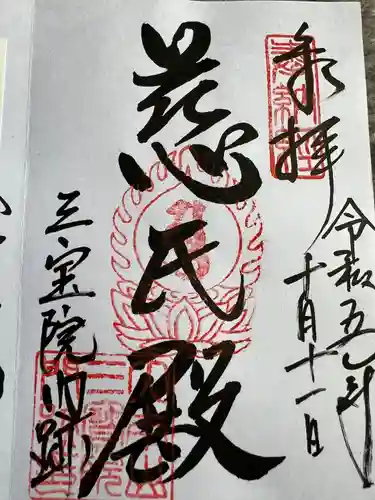 奉拝
令和五年
十月十一日
慈氏殿
三宝院門跡